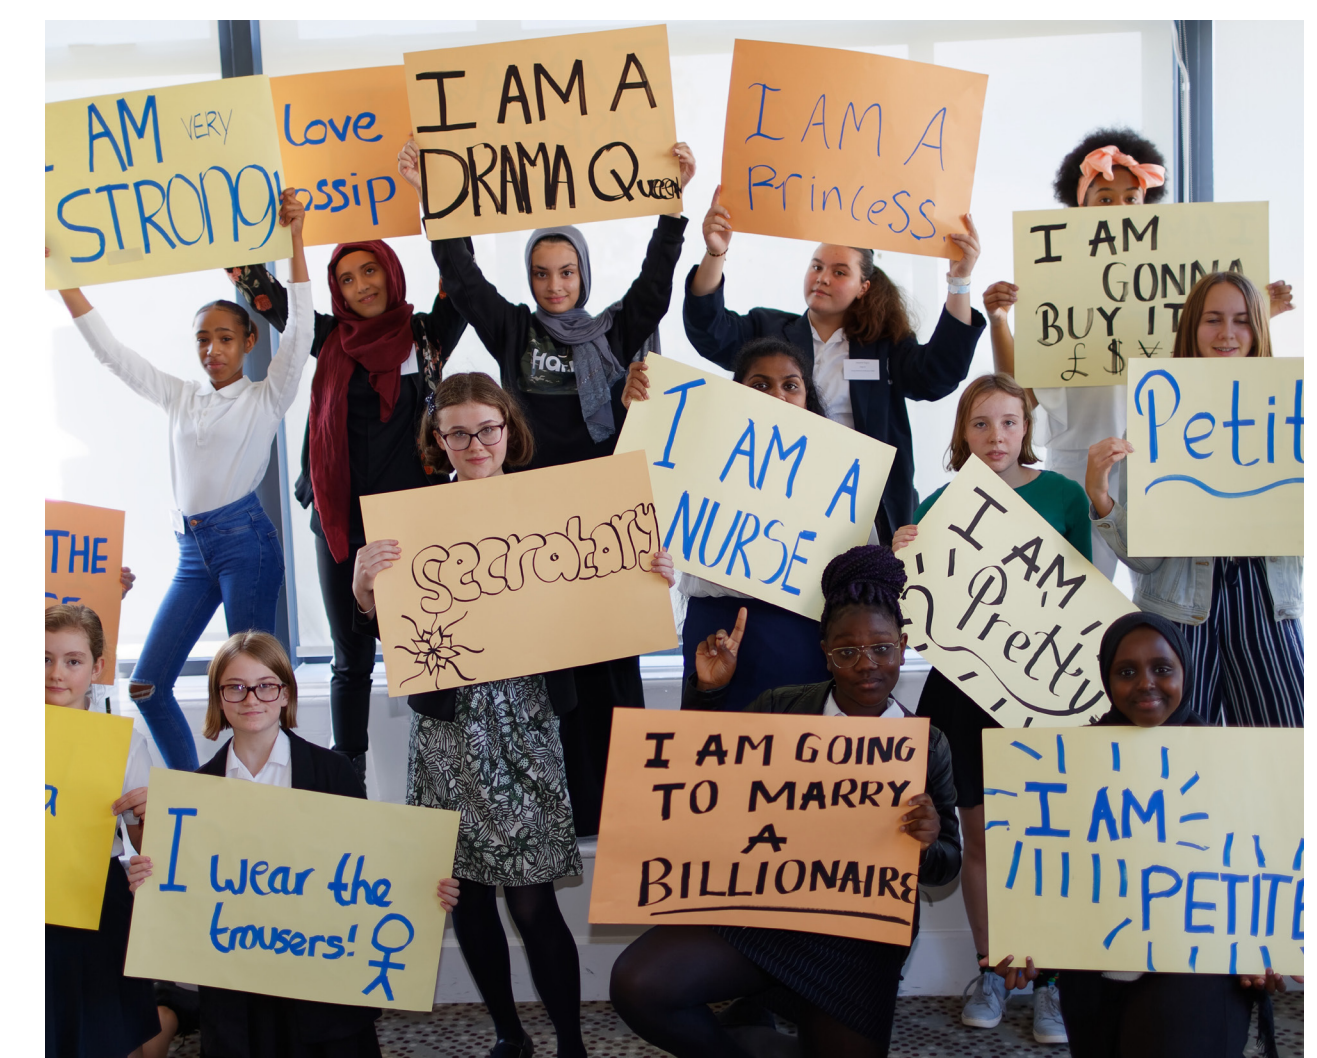 I AM VERY
STRONG
love
ossip
I AM A
DRAMA QUEEN
I AM A
Princess.
I AM
GONNA
BUY IT
£ $ ¥
Petit
THE
I AM A
NURSE
secratary
I AM
Pretty
I wear the
trousers!
I AM GOING
TO MARRY
A
BILLIONAIRE
I AM
PETITE
a